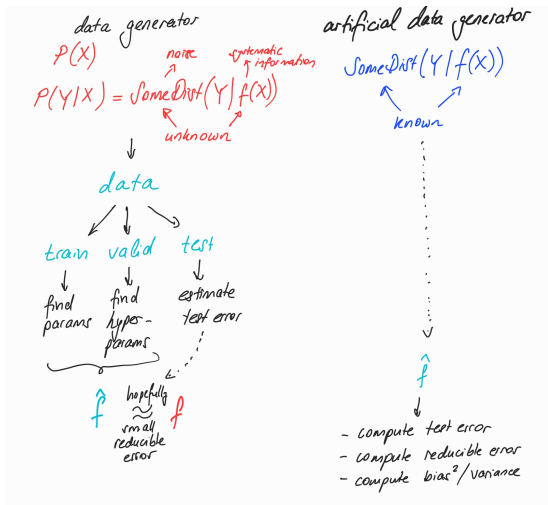 data generator
P(X)
noise
systematic
information
P(Y|X) = SomeDist(Y|f(X))
unknown
data
train valid test
find
params
find
hyper-
params
estimate
test error
f̂ hopefully ≈ f
small
reducible
error
artificial data generator
SomeDist(Y|f(X))
known
f̂
- compute test error
- compute reducible error
- compute bias²/variance